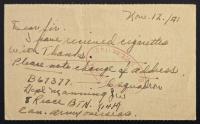 Nov. 12/41
Dear Sir.
I have received cigarettes
With Thanks.
Please note change of address.
B67377 squadron
Dept manning
8 Recce BTN.
Can. army overseas.